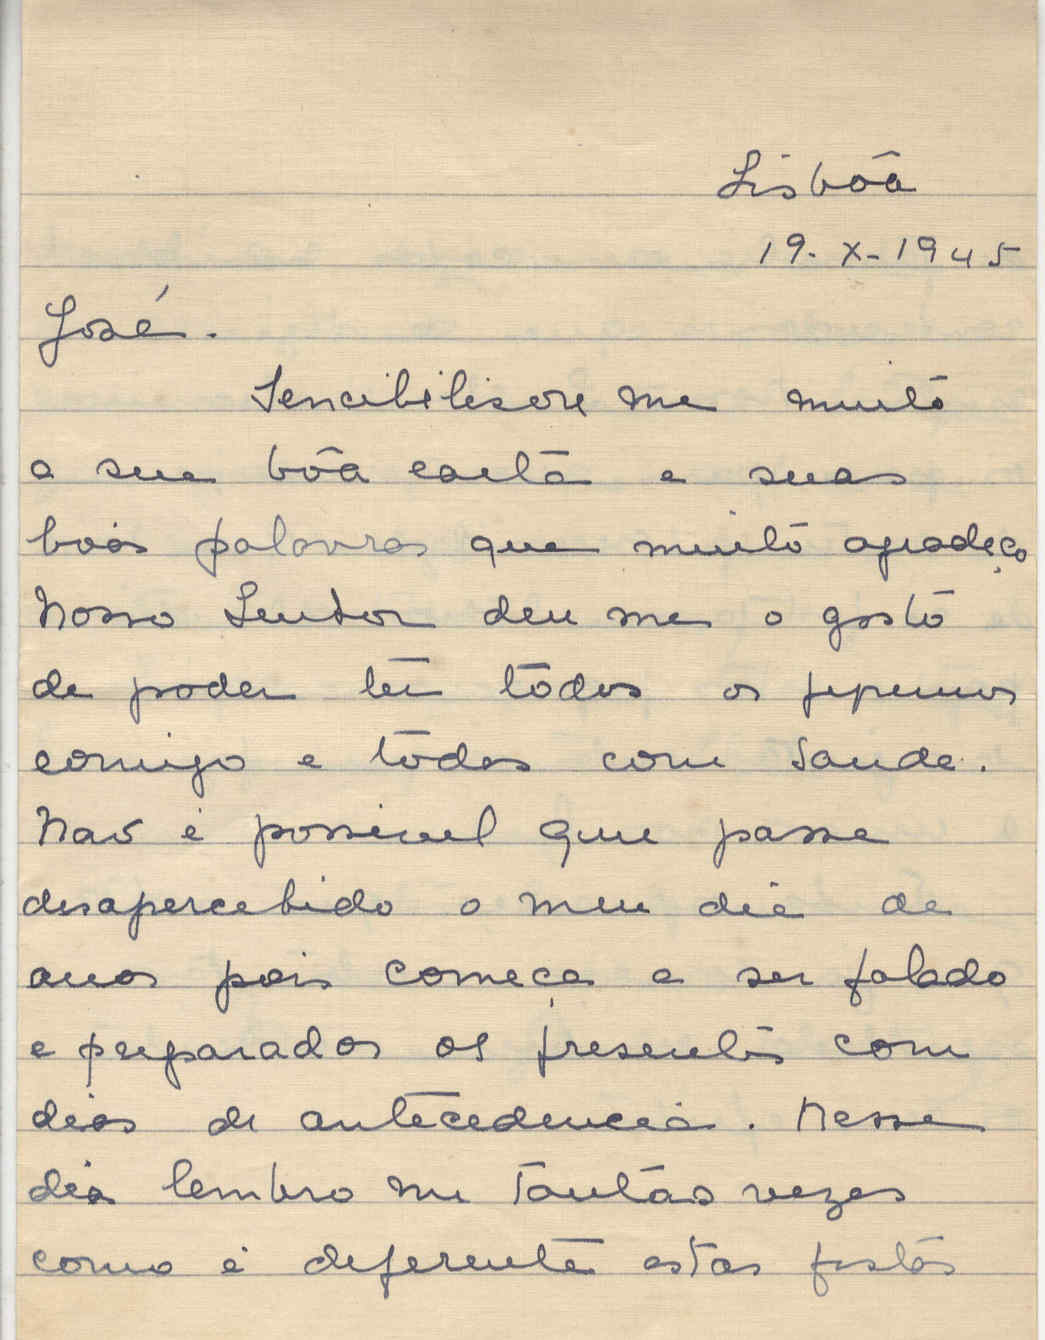 Lisbôa
19-X-1945
José.
Sencibilisou me muito
a sua bôa carta e suas
boas palavras que muito agradeço
Nosso Senhor deu me o gosto
de poder ter todos os pequenos
comigo e todos com saude.
Nao é possivel que passe
desapercebido o meu dia de
anos pois começa a ser falado
e preparados os presentes com
dias de antecedencia. Nesse
dia lembro me tantas vezes
como é diferente estas festas